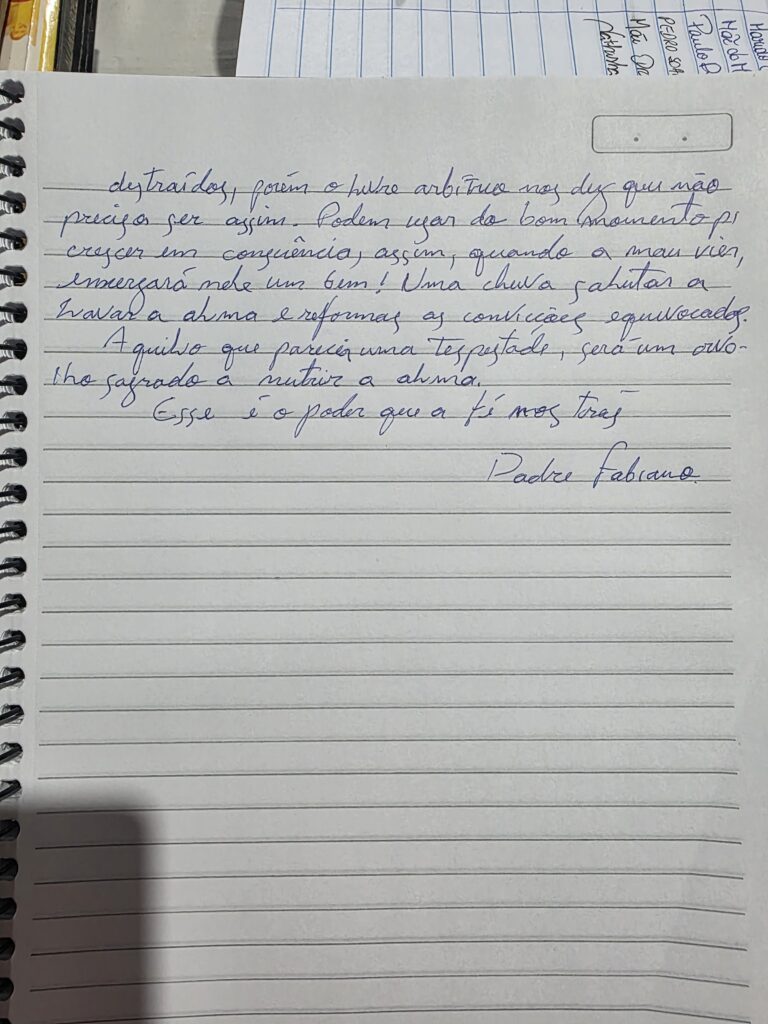 Marido
Mãe do M
Paulo R
PEDRO
Mãe Dra
distraídos, porém o livre arbítrio nos diz que não
precisa ser assim. Podem usar do bom momento p/
crescer em consciência, assim, quando o mau vier,
enxergará nele um bem! Uma chuva salutar a
lavar a alma e reformas as convicções equivocadas.
Aquilo que parecia uma tespestade, será um orva-
lho sagrado a nutrir a alma.
Esse é o poder que a fé nos trás
Padre Fabiano.